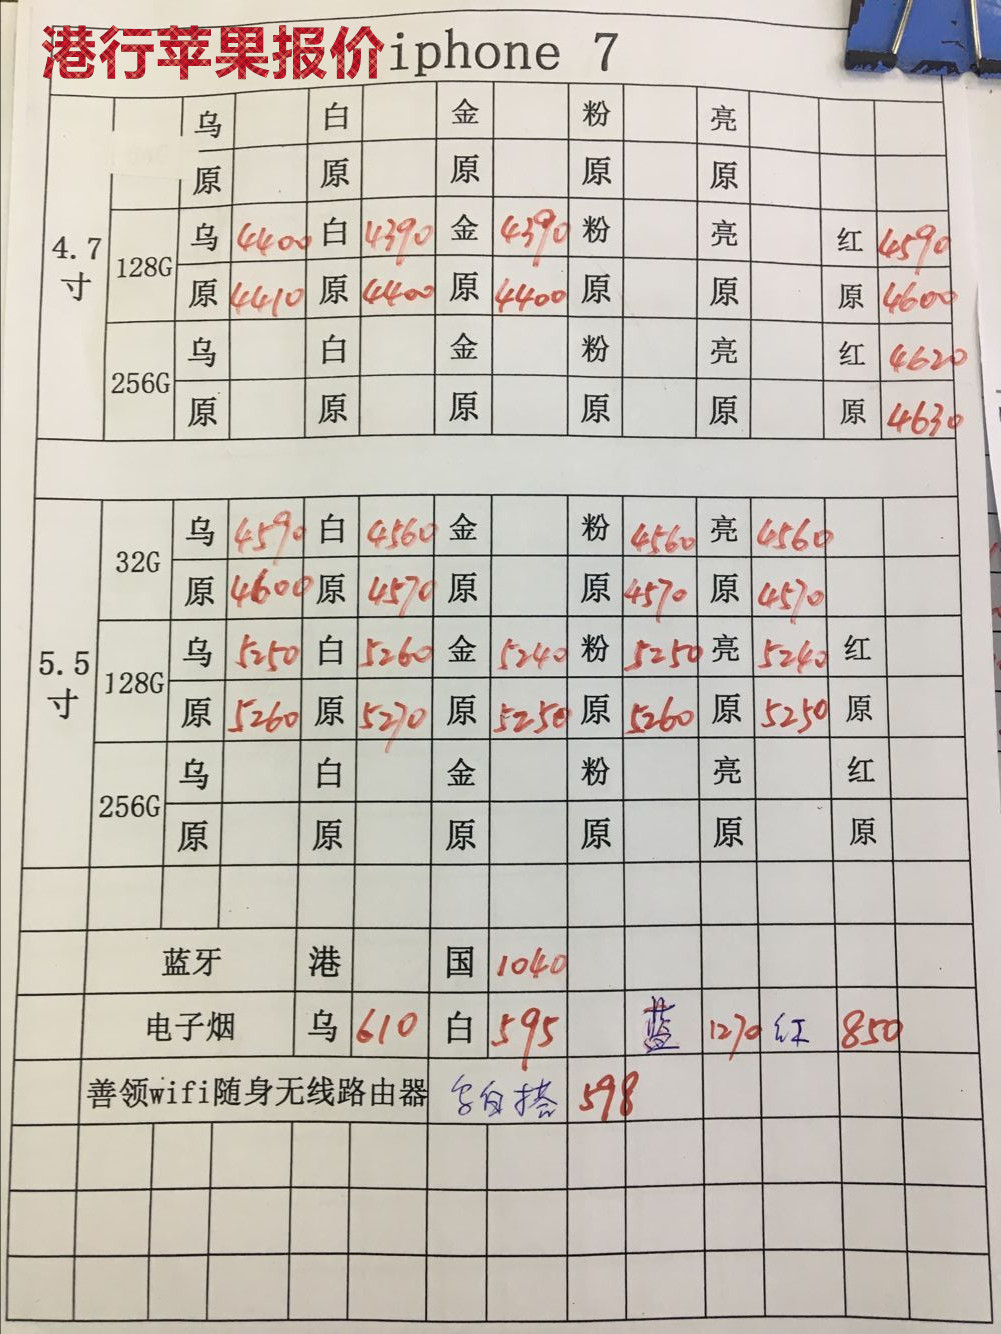 港行苹果报价iphone 7
乌 白 金 粉 亮
原 原 原 原 原
4.7寸
128G 乌 4400 白 4390 金 4390 粉 亮 红 4590
原 4410 原 4400 原 4400 原 原 原 4600
256G 乌 白 金 粉 亮 红 4620
原 原 原 原 原 原 4630
5.5寸
32G 乌 4590 白 4560 金 粉 4560 亮 4560
原 4600 原 4570 原 原 4570 原 4570
128G 乌 5250 白 5260 金 5240 粉 5250 亮 5240 红
原 5260 原 5270 原 5250 原 5260 原 5250 原
256G 乌 白 金 粉 亮 红
原 原 原 原 原 原
蓝牙 港 国 1040
电子烟 乌 610 白 595 蓝 1270 红 850
善领wifi随身无线路由器 白 搭 598